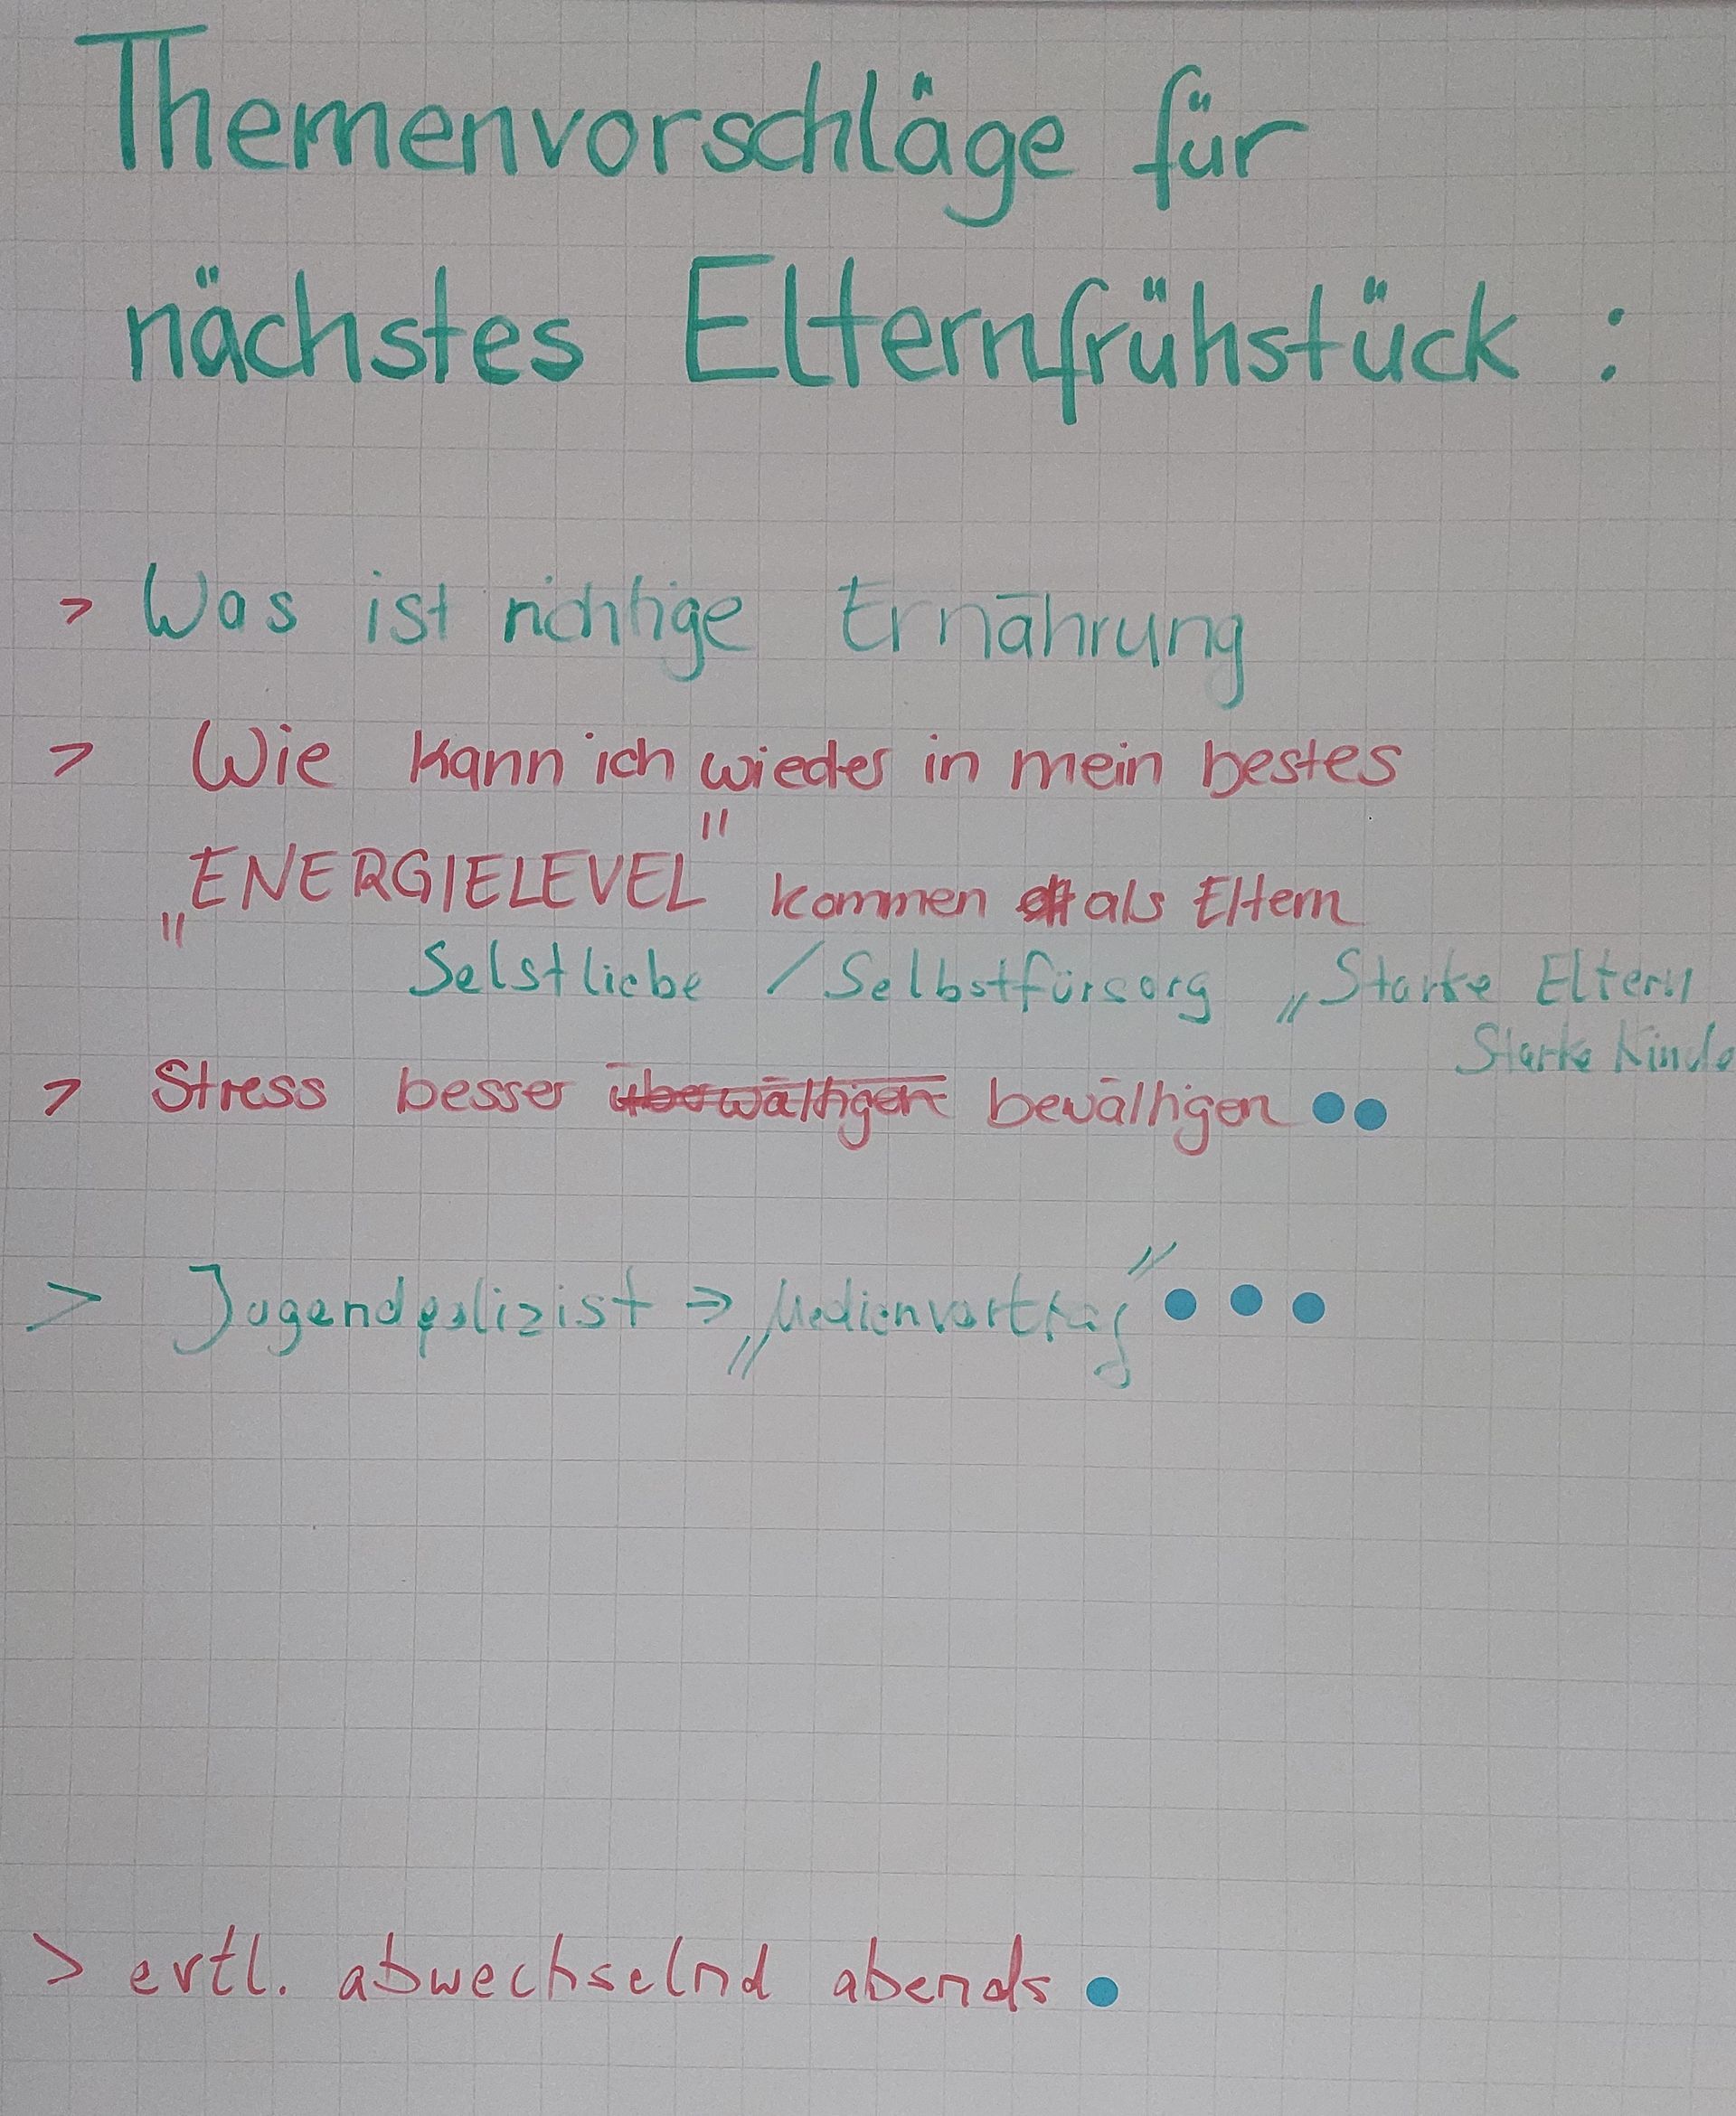 Themenvorschläge für
nächstes Elternfrühstück :
> Was ist richtige Ernährung
> Wie kann ich wieder in mein bestes
„ENERGIELEVEL" kommen als Eltern
Selstliebe / Selbstfürsorg „Starke Eltern
Starke Kinde
> Stress besser überwältigen bewältigen
> Jugendpolizist ⇒ „Medienvortrag"
> evtl. abwechselnd abends